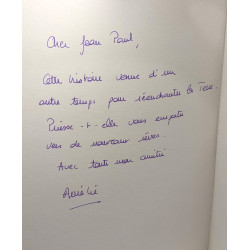 Cher Jean Paul,
Cette histoire venue d'un
autre temps pour réenchanter la Terre.
Puisse-t-elle vous emporter
vers de nouveaux rêves.
Avec toute mon amitié
Amélie